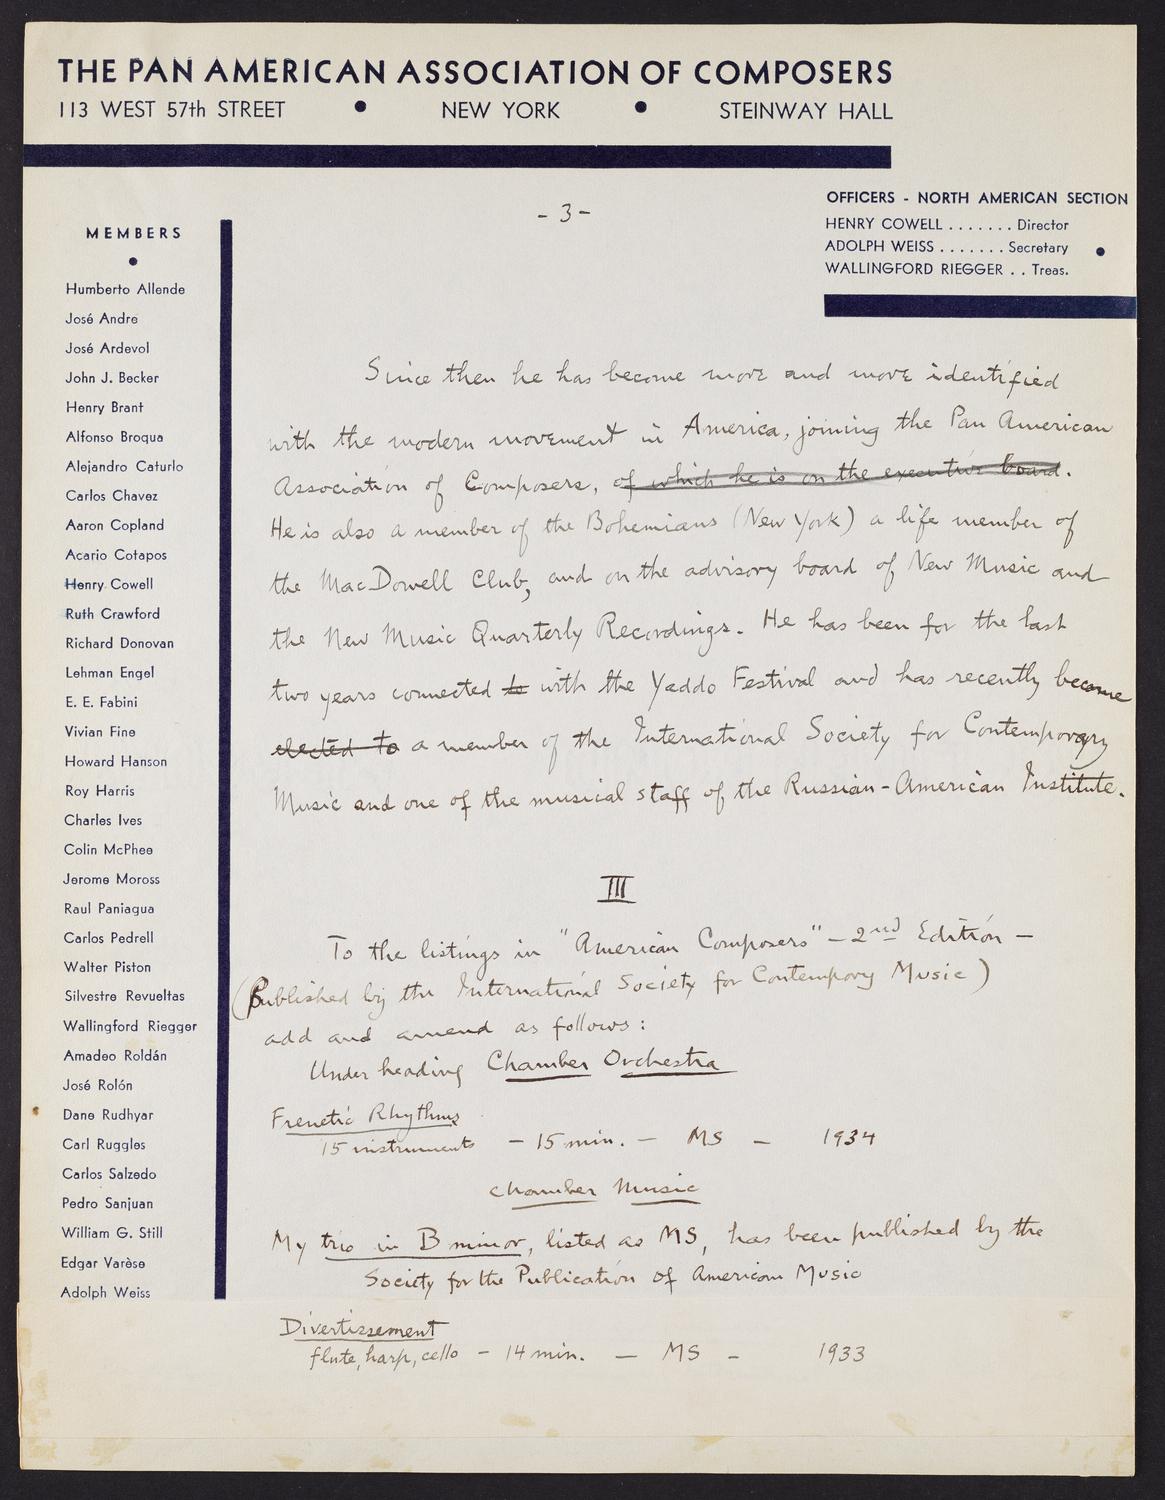 THE PAN AMERICAN ASSOCIATION OF COMPOSERS
113 WEST 57th STREET • NEW YORK • STEINWAY HALL
OFFICERS - NORTH AMERICAN SECTION
HENRY COWELL . . . . . . . Director
ADOLPH WEISS . . . . . . . Secretary •
WALLINGFORD RIEGGER . . Treas.
MEMBERS
•
Humberto Allende
José Andre
José Ardevol
John J. Becker
Henry Brant
Alfonso Broqua
Alejandro Caturlo
Carlos Chavez
Aaron Copland
Acario Cotapos
Henry Cowell
Ruth Crawford
Richard Donovan
Lehman Engel
E. E. Fabini
Vivian Fine
Howard Hanson
Roy Harris
Charles Ives
Colin McPhee
Jerome Moross
Raul Paniagua
Carlos Pedrell
Walter Piston
Silvestre Revueltas
Wallingford Riegger
Amadeo Roldán
José Rolón
Dane Rudhyar
Carl Ruggles
Carlos Salzedo
Pedro Sanjuan
William G. Still
Edgar Varèse
Adolph Weiss
- 3 -
Since then he has become more and more identified
with the modern movement in America, joining the Pan American
Association of Composers, of which he is on the executive board.
He is also a member of the Bohemians (New York) a life member of
the MacDowell Club, and on the advisory board of New Music and
the New Music Quarterly Recordings. He has been for the last
two years connected to with the Yaddo Festival and has recently become
elected to a member of the International Society for Contemporary
Music and one of the musical staff of the Russian-American Institute.
III
To the listings in "American Composers" - 2nd Edition -
(Published by the International Society for Contempory Music)
add and amend as follows:
Under heading Chamber Orchestra
Frenetic Rhythms
15 instruments - 15 min. - MS - 1934
Chamber Music
My trio in B minor, listed as MS, has been published by the
Society for the Publication of American Music
Divertissement
flute, harp, cello - 14 min. - MS - 1933